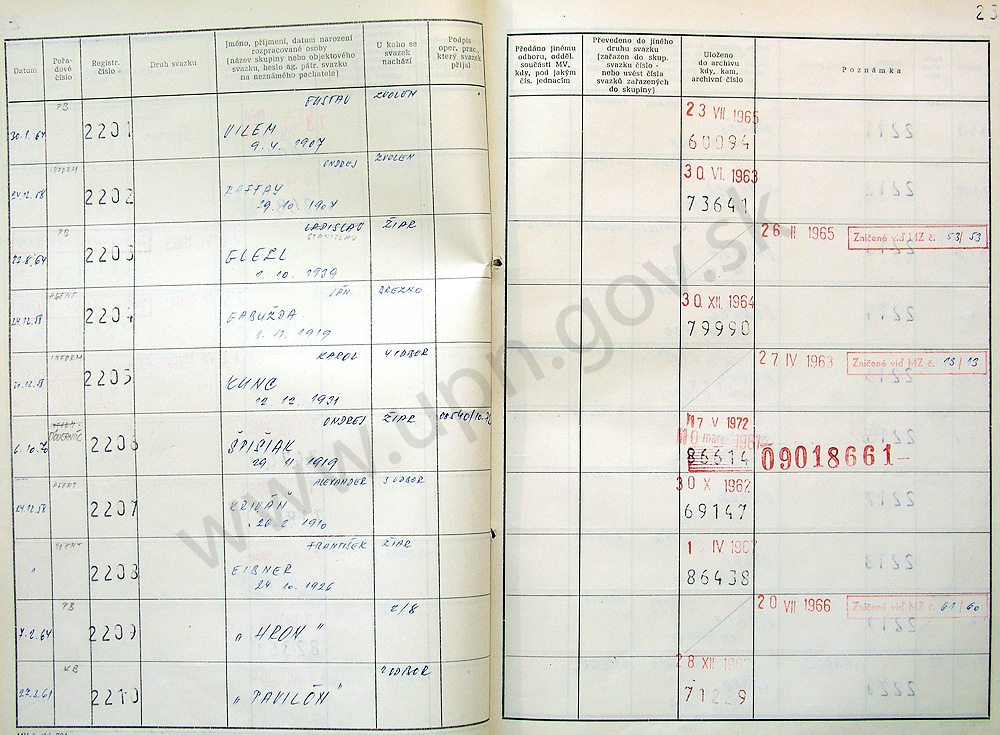 23
Datum
Pořa-
dové
číslo
Registr.
číslo
Druh svazku
Jméno, příjmení, datum narození
rozpracované osoby
(název skupiny nebo objektového
svazku, heslo ag. pátr. svazku
na neznámého pachatele)
U koho se
svazek
nachází
Podpis
oper. prac.,
který svazek
přijal
Předáno jinému
odboru, odděl.
součásti MV,
kdy, pod jakým
čís. jednacím
Převedeno do jiného
druhu svazku
(zařazen do skup.
svazku číslo -
nebo uvést čísla
svazků zařazených
do skupiny)
Uloženo
do archivu
kdy, kam,
archivní číslo
Poznámka
PB GUSTAV ZVOLEN 23 VII 1965
30.1.64 2201 VILEM 60094
9.4.1907
INFORM ONDREJ ZVOLEN 30. VI. 1963
24.12.58 2202 RAFFAY 73641
29.10.1907
PB LADISLAV ŽIAR 26 II. 1965 Zničené viď MZ č. 53/53
STANISLAV
2203 GLEZL
10.1939
AGENT JÁN BREZNO 30. XII. 1964
24.12.58 2204 GABUŽDA 79990
1919
INFORM KAROL ODBOR 27 IV 1963 Zničené viď MZ č. 13/13
2205 KUNC
12.12.1931
ONDREJ ŽIAR 17 V 1972
DÔVERNÍK
6.10.70 2206 ŠPIŠIAK 86614 09018661
29.11.1919
AGENT ALEXANDER ODBOR 30 X 1962
24.12.58 2207 KRIVÁŇ 69147
1910
AGENT FRANTIŠEK ŽIAR 1 IV. 1967
" 2208 EIBNER 86438
24.10.1926
PB 2/8 20 VII 1966 Zničené viď MZ č. 61/60
7.2.64 2209 „HRON"
KB ODBOR 28 XII
27.3.61 2210 „PAVILÓN" 71229
www.upn.gov.sk